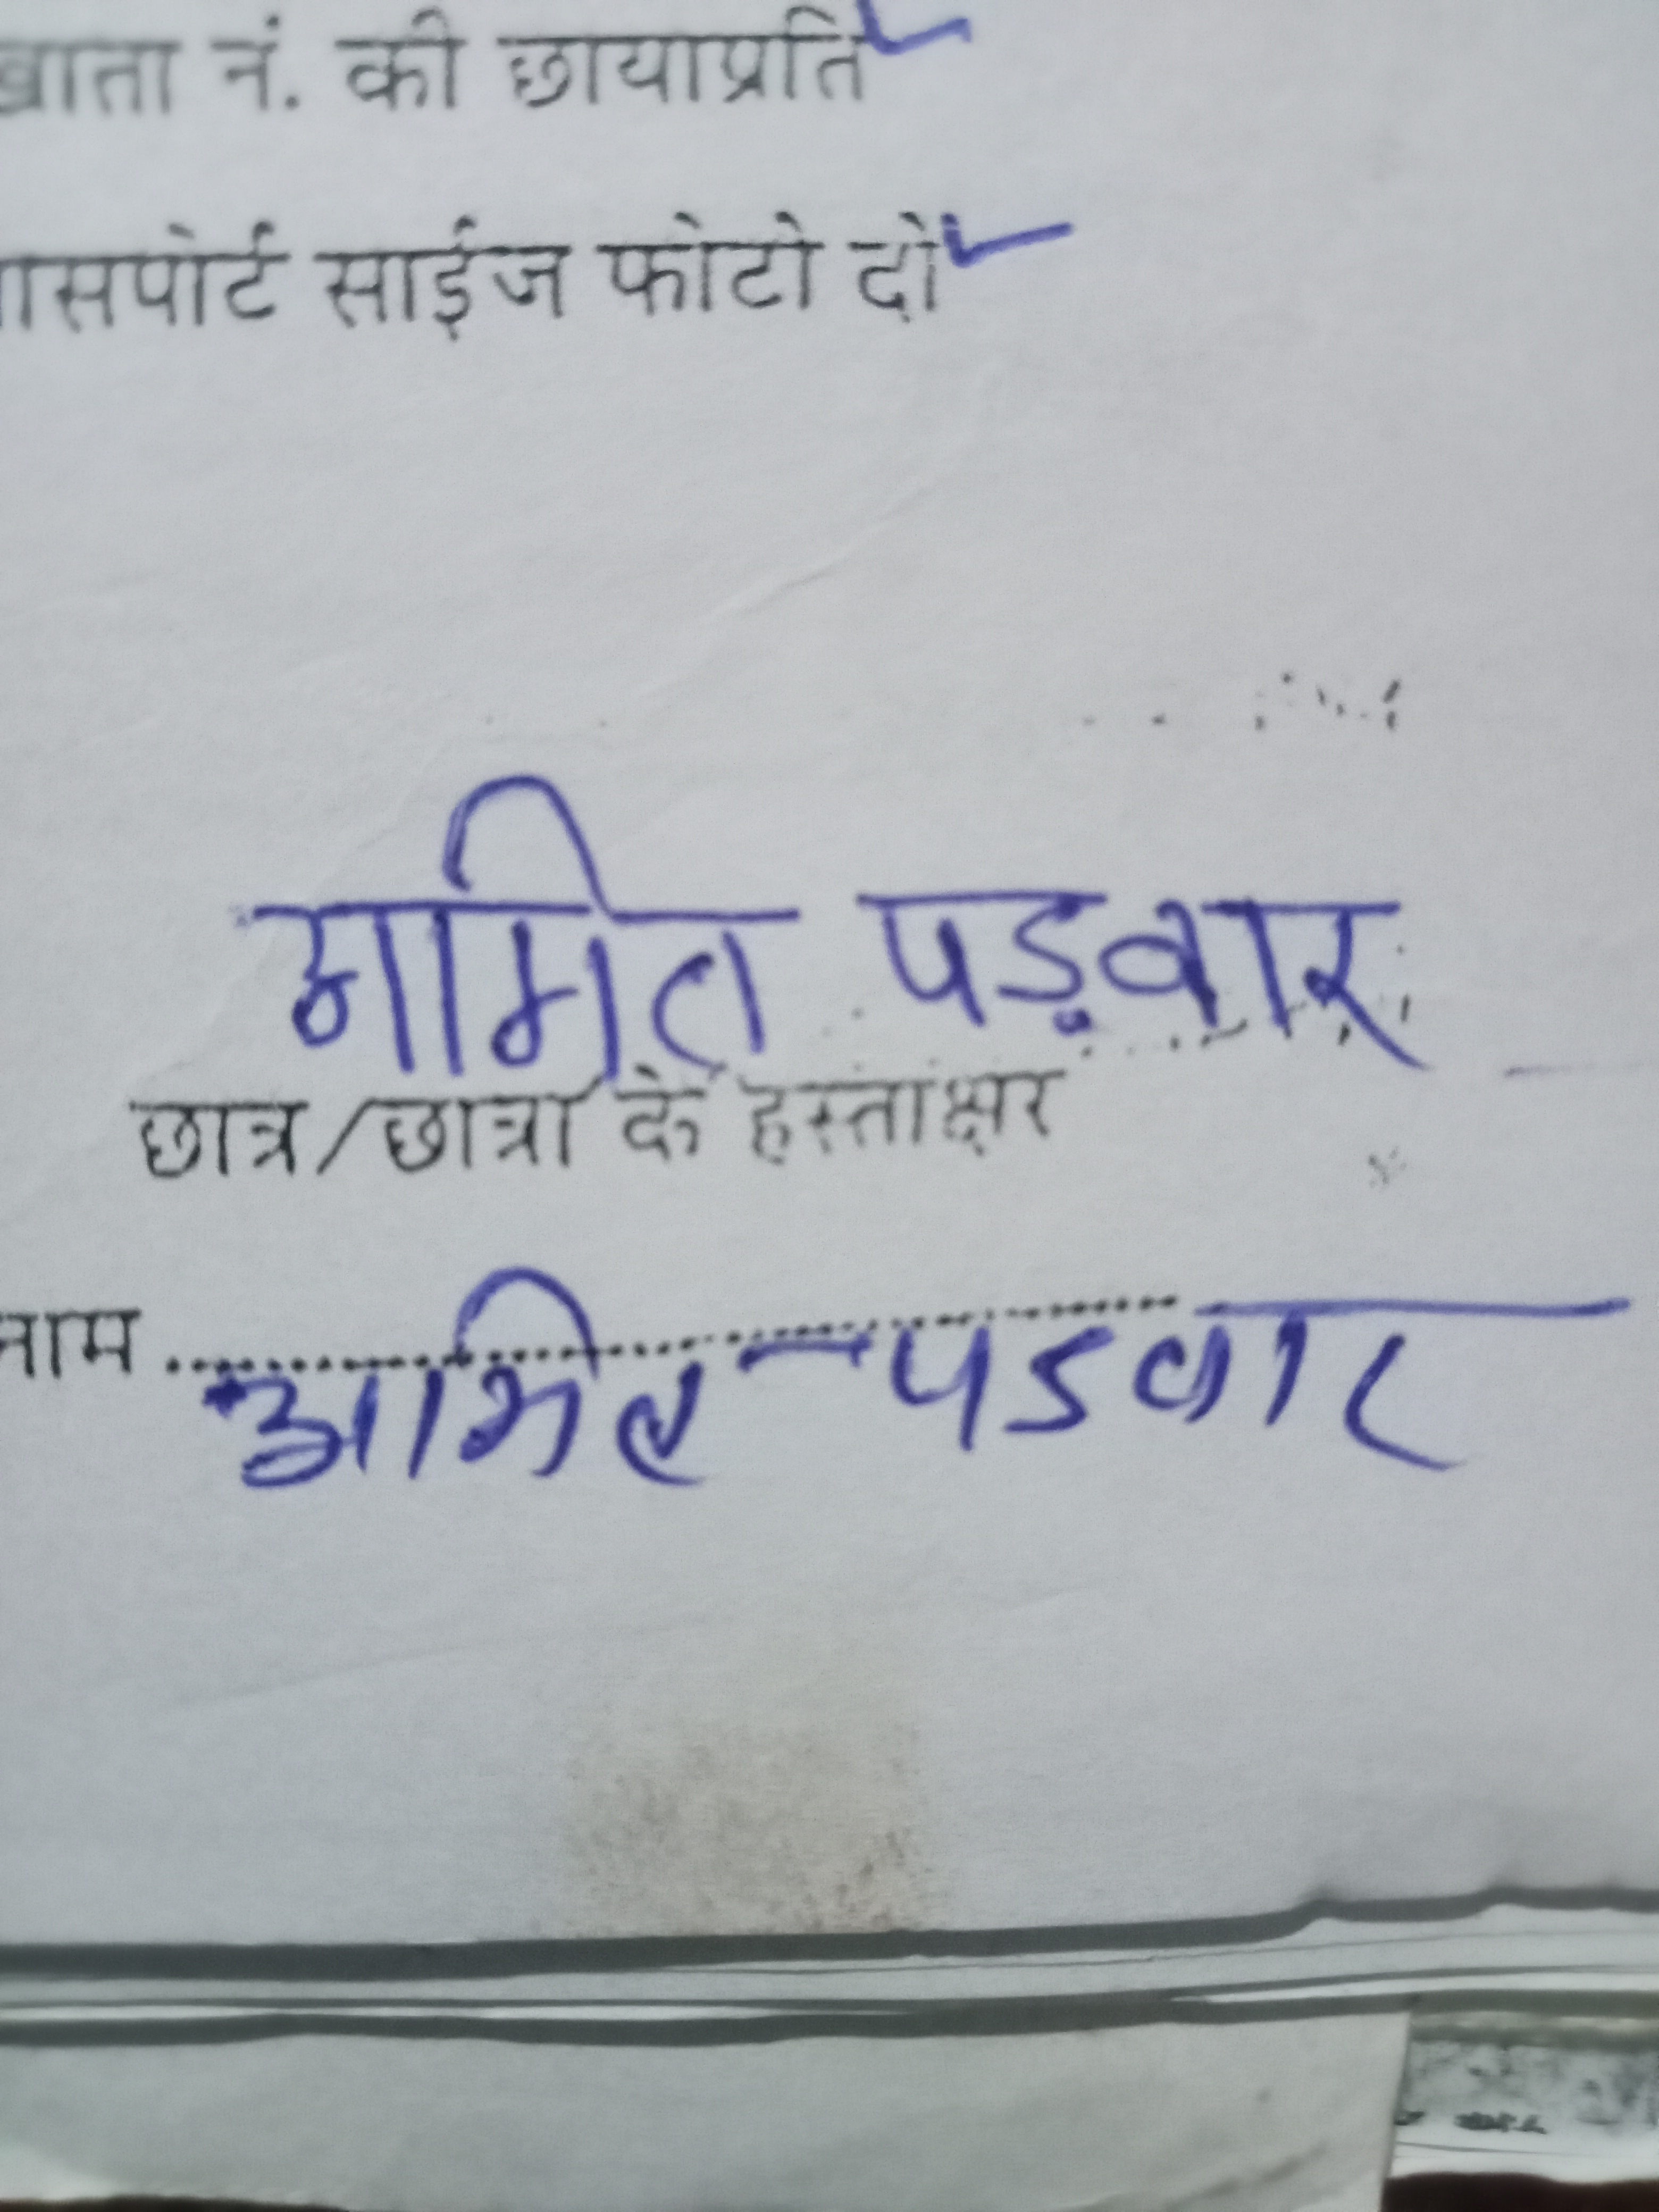 खाता नं. की छायाप्रति
पासपोर्ट साईज फोटो दो
अमित पड़वार
छात्र/छात्रा के हस्ताक्षर
नाम ........................ अमित पडवार